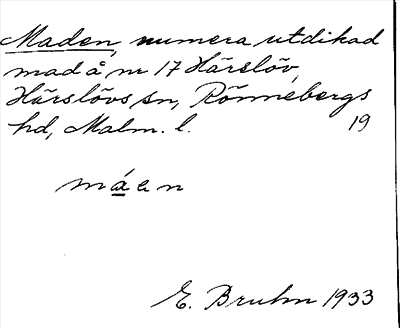 Maden, numera utdikad
mad å nr 17 Härslöv,
Härslövs sn, Rönnebergs
hd, Malm. l. 19
máen
E. Bruhn 1933